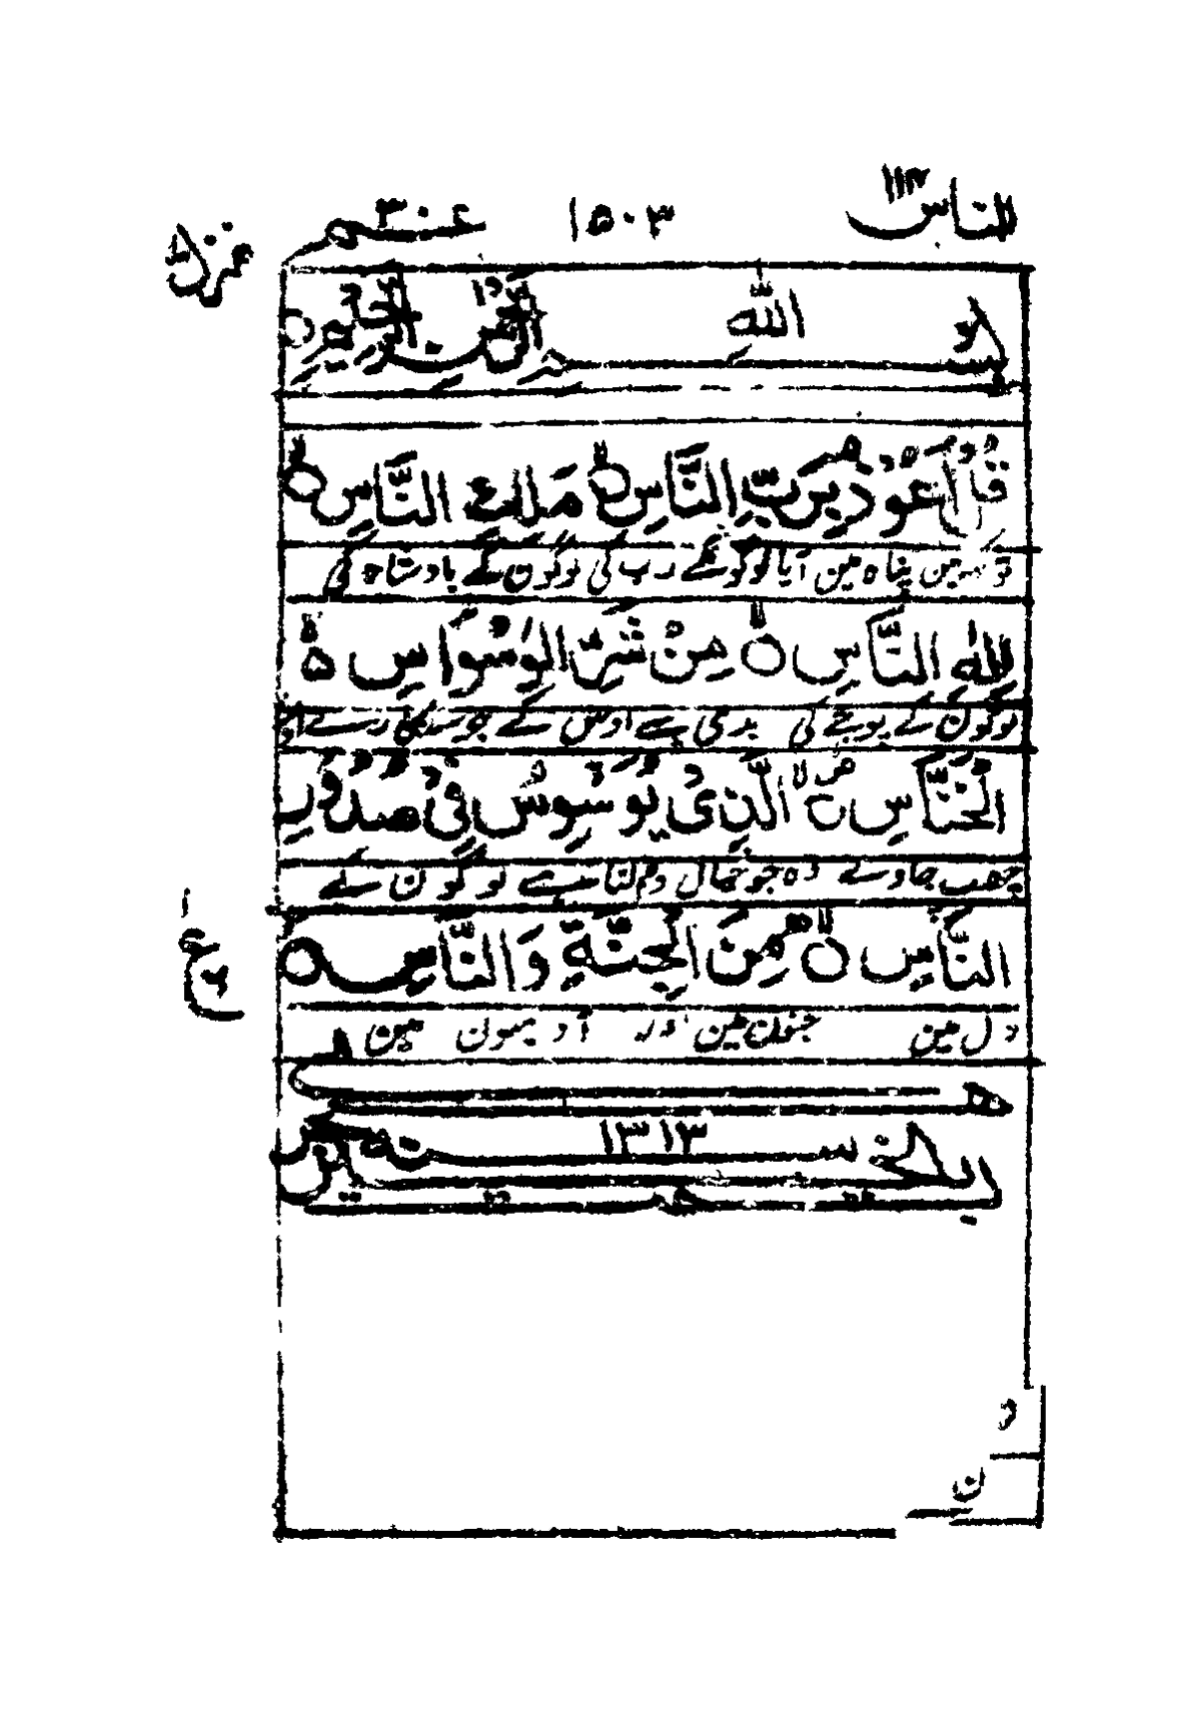 الناس ١١٤ ١٥٠٣ عم ٣٠
منزل
بِسْمِ اللّٰهِ الرَّحْمٰنِ الرَّحِيْمِ ۝
قُلْ اَعُوْذُ بِرَبِّ النَّاسِ ۝ مَلِكِ النَّاسِ ۝
تو کہہ مین پناہ مین آیا لوگونکے رب کی لوگون کے بادشاہ کی
اِلٰهِ النَّاسِ ۝ مِنْ شَرِّ الْوَسْوَاسِ ۵
لوگون کے پوجے کی بدی سے اوس کے جو سنکارے اور
الْخَنَّاسِ ۝ الَّذِيْ يُوَسْوِسُ فِيْ صُدُوْرِ
چھپ جاوے وہ جو خیال ڈالتا ہے لوگون کے
النَّاسِ ۝ مِنَ الْجِنَّةِ وَالنَّاسِ ۝
دل مین جنون مین اور آدمیون مین
ع
١٣١٣